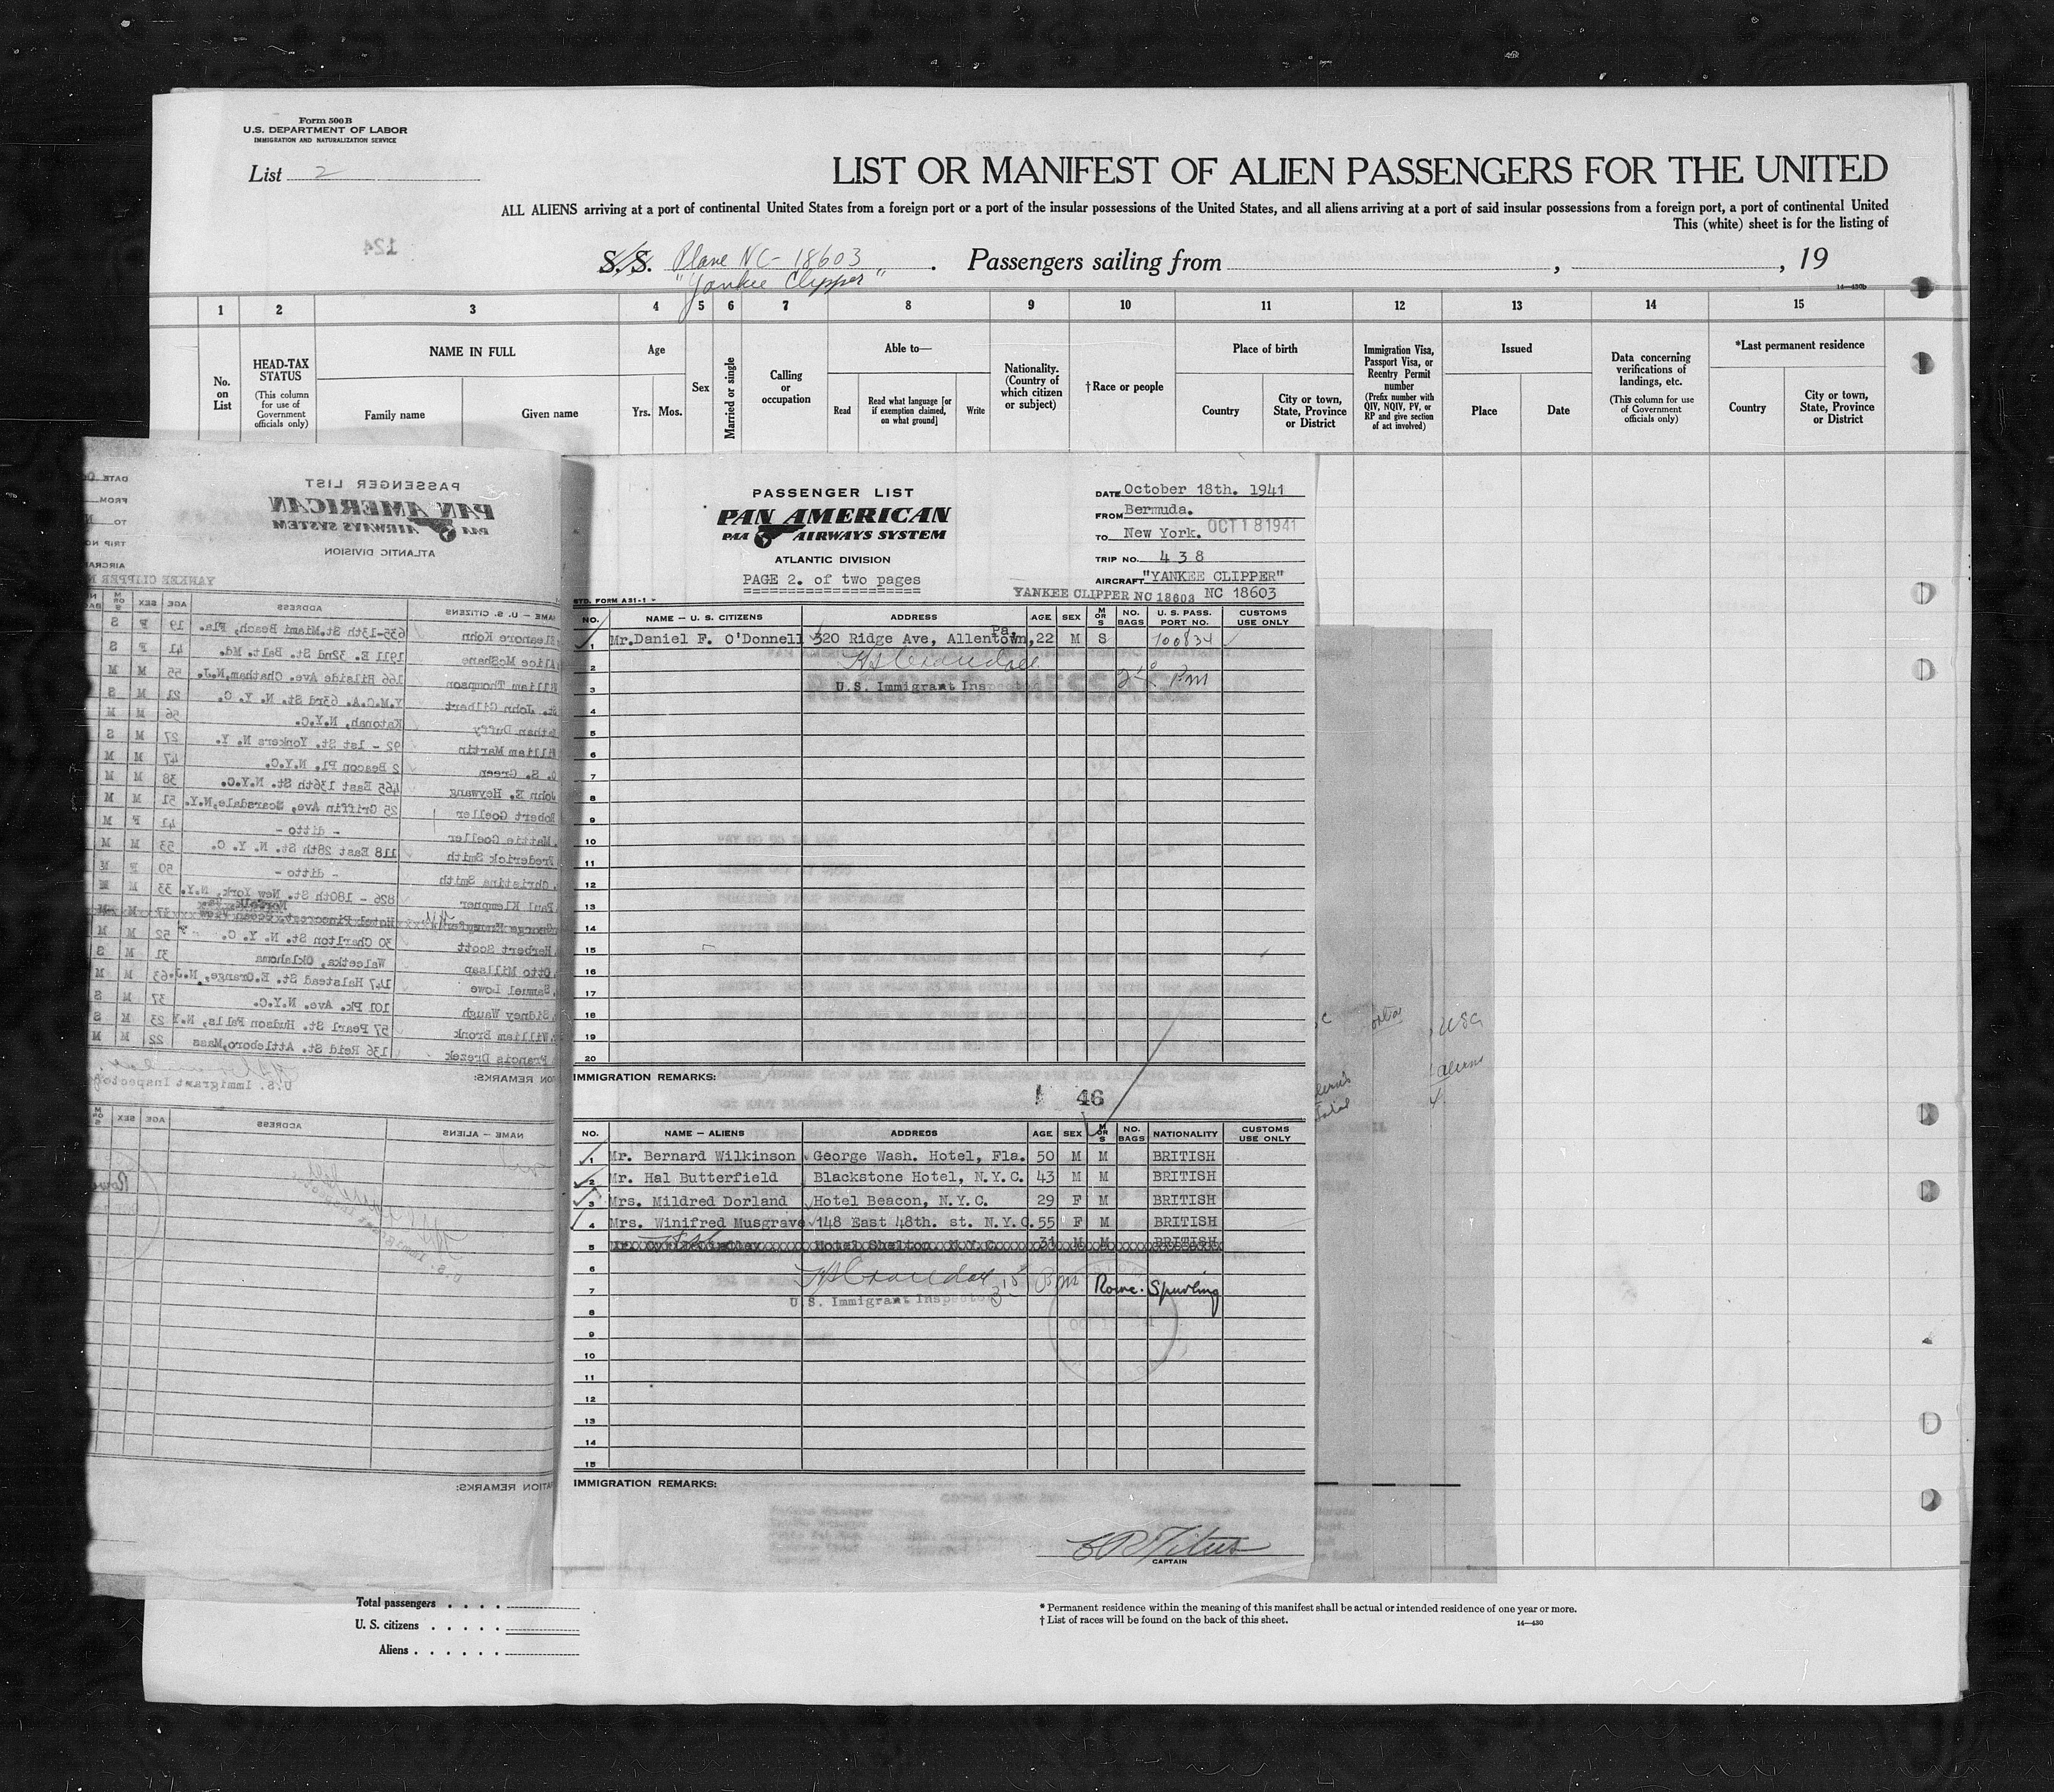 Form 500B
U.S. DEPARTMENT OF LABOR
IMMIGRATION AND NATURALIZATION SERVICE
List 2
LIST OR MANIFEST OF ALIEN PASSENGERS FOR THE UNITED
ALL ALIENS arriving at a port of continental United States from a foreign port or a port of the insular possessions of the United States, and all aliens arriving at a port of said insular possessions from a foreign port, a port of continental United
This (white) sheet is for the listing of
124
S.S. Plane NC-18603 . Passengers sailing from , , 19
"Yankee Clipper"
14—430b
1 2 3 4 5 6 7 8 9 10 11 12 13 14 15
No. on List
HEAD-TAX STATUS
(This column for use of Government officials only)
NAME IN FULL
Family name Given name
Age
Yrs. Mos.
Sex
Married or single
Calling or occupation
Able to—
Read
Read what language [or if exemption claimed, on what ground]
Write
Nationality. (Country of which citizen or subject)
† Race or people
Place of birth
Country
City or town, State, Province or District
Immigration Visa, Passport Visa, or Reentry Permit number
(Prefix number with QIV, NQIV, PV, or RP and give section of act involved)
Issued
Place Date
Data concerning verifications of landings, etc.
(This column for use of Government officials only)
*Last permanent residence
Country
City or town, State, Province or District
PASSENGER LIST
PAN AMERICAN
PAA AIRWAYS SYSTEM
ATLANTIC DIVISION
YANKEE CLIPPER
NAME — U. S. CITIZENS ADDRESS AGE SEX M OR S
Eleanore Kohn 635-13th St.Miami Beach, Fla. 19 F S
Alice McShane 1911 E. 32nd St. Balt. Md. 41 F S
William Thompson 166 Hillside Ave. Chatham,N.J. 55 M M
St. John Gilbert Y.M.C.A. 63rd St. N. Y. C. 21 M S
Nathan Duffy Katonah, N.Y.C. 56 M M
William Martin 92 - 1st St. Yonkers N. Y. 27 M S
S. Green 2 Beacon Pl. N.Y.C. 47 M M
John E. Heywang 465 East 136th St. N.Y.C. 38 M M
Robert Goeller 25 Griffin Ave, Scarsdale,N.Y. 51 M M
Mattie Goeller - ditto - 41 F M
Frederick Smith 118 East 28th St. N. Y. C. 53 M M
Christina Smith - ditto - 50 F M
Paul Klempner 826 - 180th St. New York, N.Y. 33 M M
George Hotel Pinecrest, Ocean View Norfolk Va. 37 M M
Herbert Scott 30 Charlton St. N. Y. C. 52 M M
Otto Millsap Waleetka, Oklahoma 31 M S
Samuel Lowe 147 Halstead St. E.Orange, N.J. 63 M M
Sidney Waugh 101 Pk. Ave. N.Y.C. 37 M S
William Bronk 57 Pearl St. Hudson Falls, N.Y 23 M S
Francis Drezek 136 Reid St. Attleboro,Mass 22 M M
U.S. Immigrant Inspector
NAME — ALIENS ADDRESS AGE SEX M OR S
U.S. Immigrant Inspector
PASSENGER LIST
PAN AMERICAN
PAA AIRWAYS SYSTEM
ATLANTIC DIVISION
PAGE 2. of two pages
DATE October 18th. 1941
FROM Bermuda.
TO New York. OCT 18 1941
TRIP NO. 4 3 8
AIRCRAFT "YANKEE CLIPPER"
YANKEE CLIPPER NC 18603 NC 18603
STD. FORM A31-1
NO. NAME — U. S. CITIZENS ADDRESS AGE SEX M OR S NO. BAGS U. S. PASS. PORT NO. CUSTOMS USE ONLY
1 Mr.Daniel F. O'Donnell 320 Ridge Ave, Allentown, Pa. 22 M S 100834
2 HS Crandall
3 U.S. Immigrant Inspector Pm
4
5
6
7
8
9
10
11
12
13
14
15
16
17
18
19
20
IMMIGRATION REMARKS:
46
NO. NAME — ALIENS ADDRESS AGE SEX M OR S NO. BAGS NATIONALITY CUSTOMS USE ONLY
1 Mr. Bernard Wilkinson George Wash. Hotel, Fla. 50 M M BRITISH
2 Mr. Hal Butterfield Blackstone Hotel, N.Y.C. 43 M M BRITISH
3 Mrs. Mildred Dorland Hotel Beacon, N.Y.C. 29 F M BRITISH
4 Mrs. Winifred Musgrave 148 East 48th. st. N.Y.C. 55 F M BRITISH
5 Hotel Shelton N.Y.C. 31 M M BRITISH
6
7 HS Crandall 3 15 Pm Rowe. Spurling
U.S. Immigrant Inspector
8
9
10
11
12
13
14
15
IMMIGRATION REMARKS:
CAPTAIN
USC
aliens
Total passengers
U. S. citizens
Aliens
* Permanent residence within the meaning of this manifest shall be actual or intended residence of one year or more.
† List of races will be found on the back of this sheet.
14—430